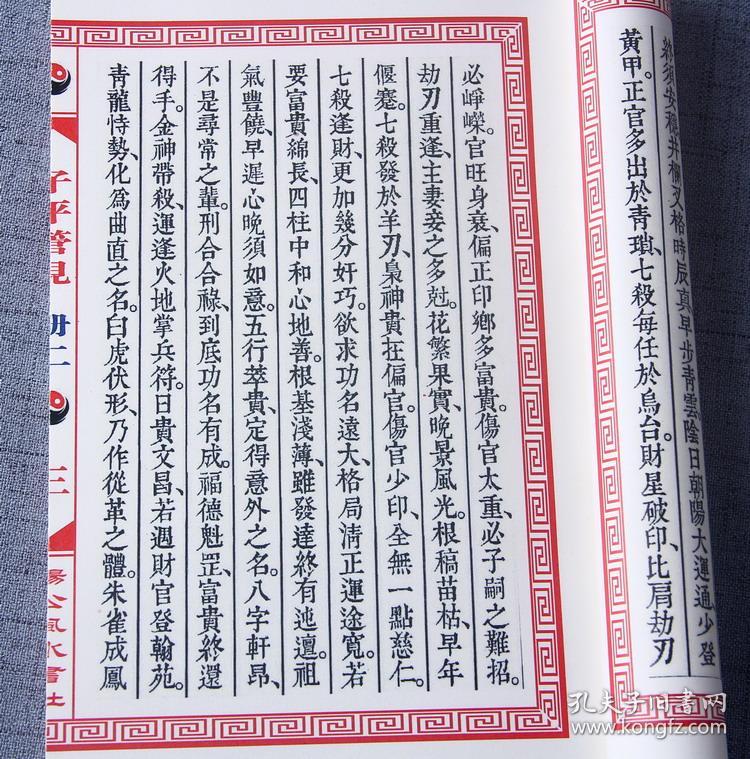 終須安穩井欄叉格時辰真早步青雲陰日朝陽大運通、少登
黃甲。正官多出於青瑣、七殺每任於烏台。財星破印、比肩劫刃
必崢嶸。官旺身衰、偏正印鄉多富貴。傷官太重、必子嗣之難招。
劫刃重逢、主妻妾之多尅。花繁果實、晚景風光。根稿苗枯、早年
偃蹇。七殺發於羊刃、梟神貴在偏官。傷官少印、全無一點慈仁。
七殺逢財、更加幾分奸巧。欲求功名遠大、格局淸正運途寬。若
要富貴綿長、四柱中和心地善。根基淺薄、雖發達終有迍邅。祖
氣豐饒、早遲心晚須如意。五行萃貴、定得意外之名。八字軒昂、
不是尋常之輩。刑合合祿、到底功名有成。福德魁罡、富貴終還
得手。金神帶殺、運逢火地掌兵符。日貴文昌、若遇財官登翰苑。
靑龍恃勢、化爲曲直之名。白虎伏形、乃作從革之體。朱雀成鳳
子平管見 册二 三
楊公風水書社
孔夫子旧书网
kongfz.com